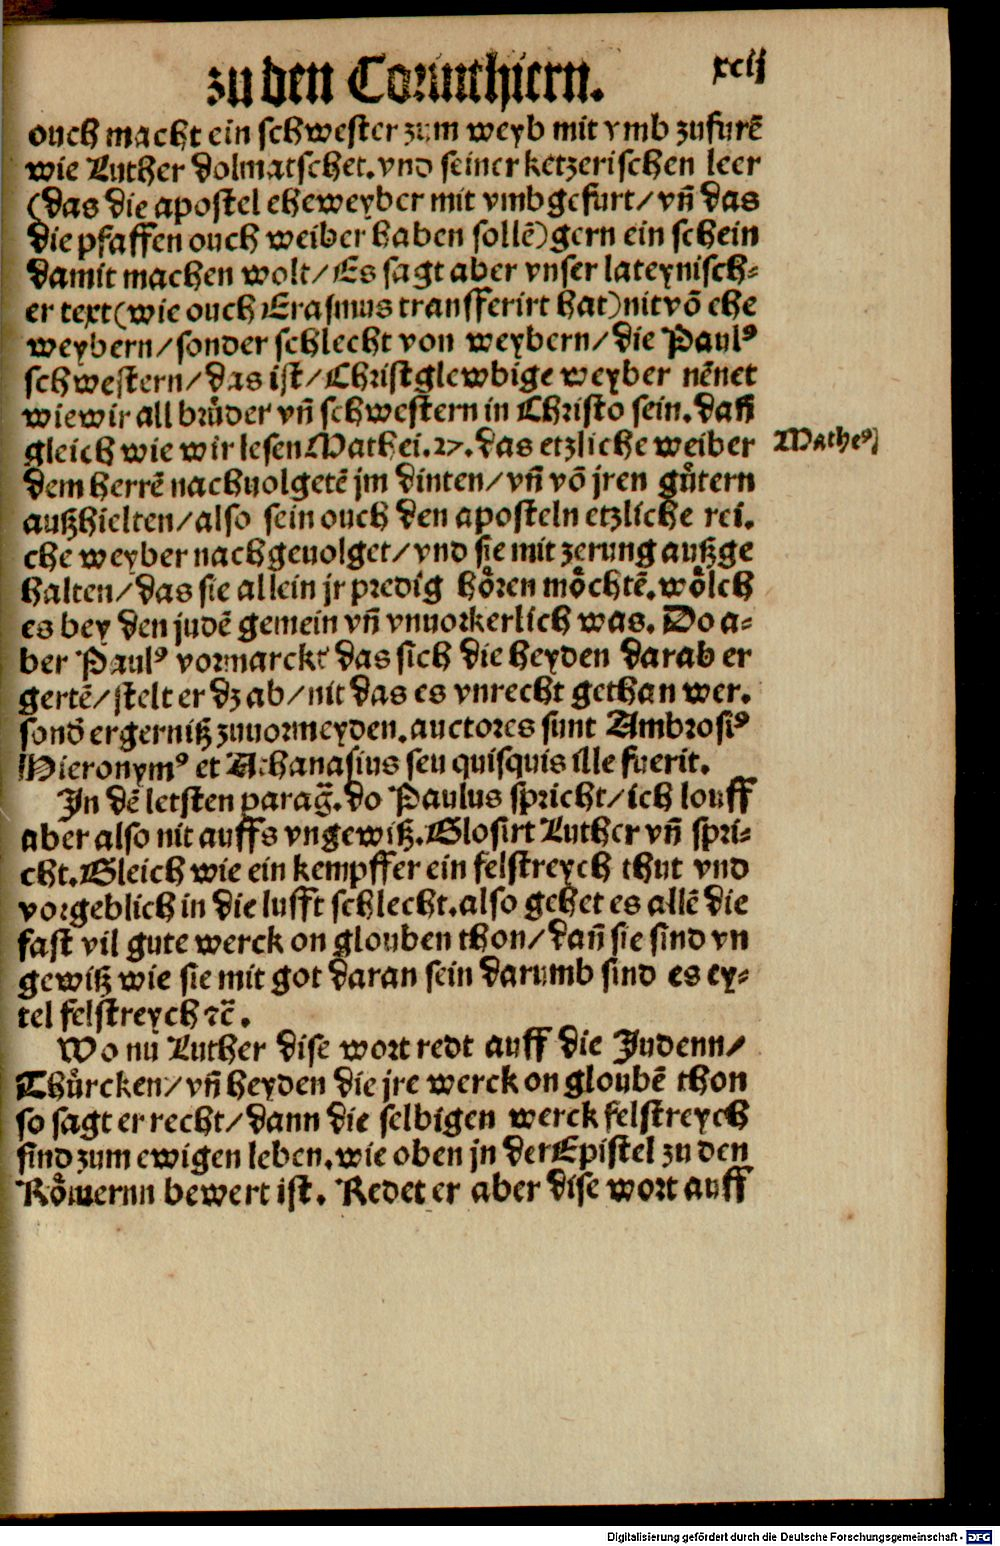 zu den Corinthiern. xcij
ouch macht ein schwester zum weyb mit vmb zufurē
wie Luther dolmatschet. vnd seiner ketzerischen leer
(das die apostel eheweyber mit vmbgefurt/ vñ das
die pfaffen ouch weiber haben sollē) gern ein schein
damit machen wolt/ Es sagt aber vnser lateynisch⸗
er text (wie ouch Erasmus transferirt hat) nit vō ehe
weybern/ sonder schlecht von weybern/ die Paulꝰ
schwestern/ das ist/ Christglewbige weyber nēnet
wie wir all brůder vñ schwestern in Christo sein. dañ
gleich wie wir lesen Mathei. 27. das etzliche weiber
Matheꝰ
dem herrē nachuolgetē jm dinten/ vñ vō jren gůtern
außhielten/ also sein ouch den aposteln etzliche rei.
che weyber nachgeuolget/ vnd sie mit zerung außge
halten/ das sie allein jr predig hoͤren moͤchtē. woͤlch
es bey den judē gemein vñ vnuorkerlich was. Do a⸗
ber Paulꝰ vormarckt das sich die heyden darab er
gertē/ stelt er dz ab/ nit das es vnrecht gethan wer.
sond̄ ergerniß zuuormeyden. auctores sunt Ambrosiꝰ
Hieronymꝰ et Athanasius seu quisquis ille fuerit.
In dē letsten parag̃. do Paulus spricht/ ich louff
aber also nit auffs vngewiß. Glosirt Luther vñ spri⸗
cht. Gleich wie ein kempffer ein felstreych thut vnd
vorgeblich in die lufft schlecht. also gehet es allē die
fast vil gute werck on glouben thon/ dañ sie sind vn
gewiß wie sie mit got daran sein darumb sind es ey⸗
tel felstreych ⁊c̄.
Wo nu Luther dise wort redt auff die Judenn/
Thürcken/ vñ heyden die jre werck on gloubē thon
so sagt er recht/ dann die selbigen werck felstreych
sind zum ewigen leben. wie oben jn der Epistel zu den
Roͤmernn bewert ist. Redet er aber dise wort auff
Digitalisierung gefördert durch die Deutsche Forschungsgemeinschaft - DFG